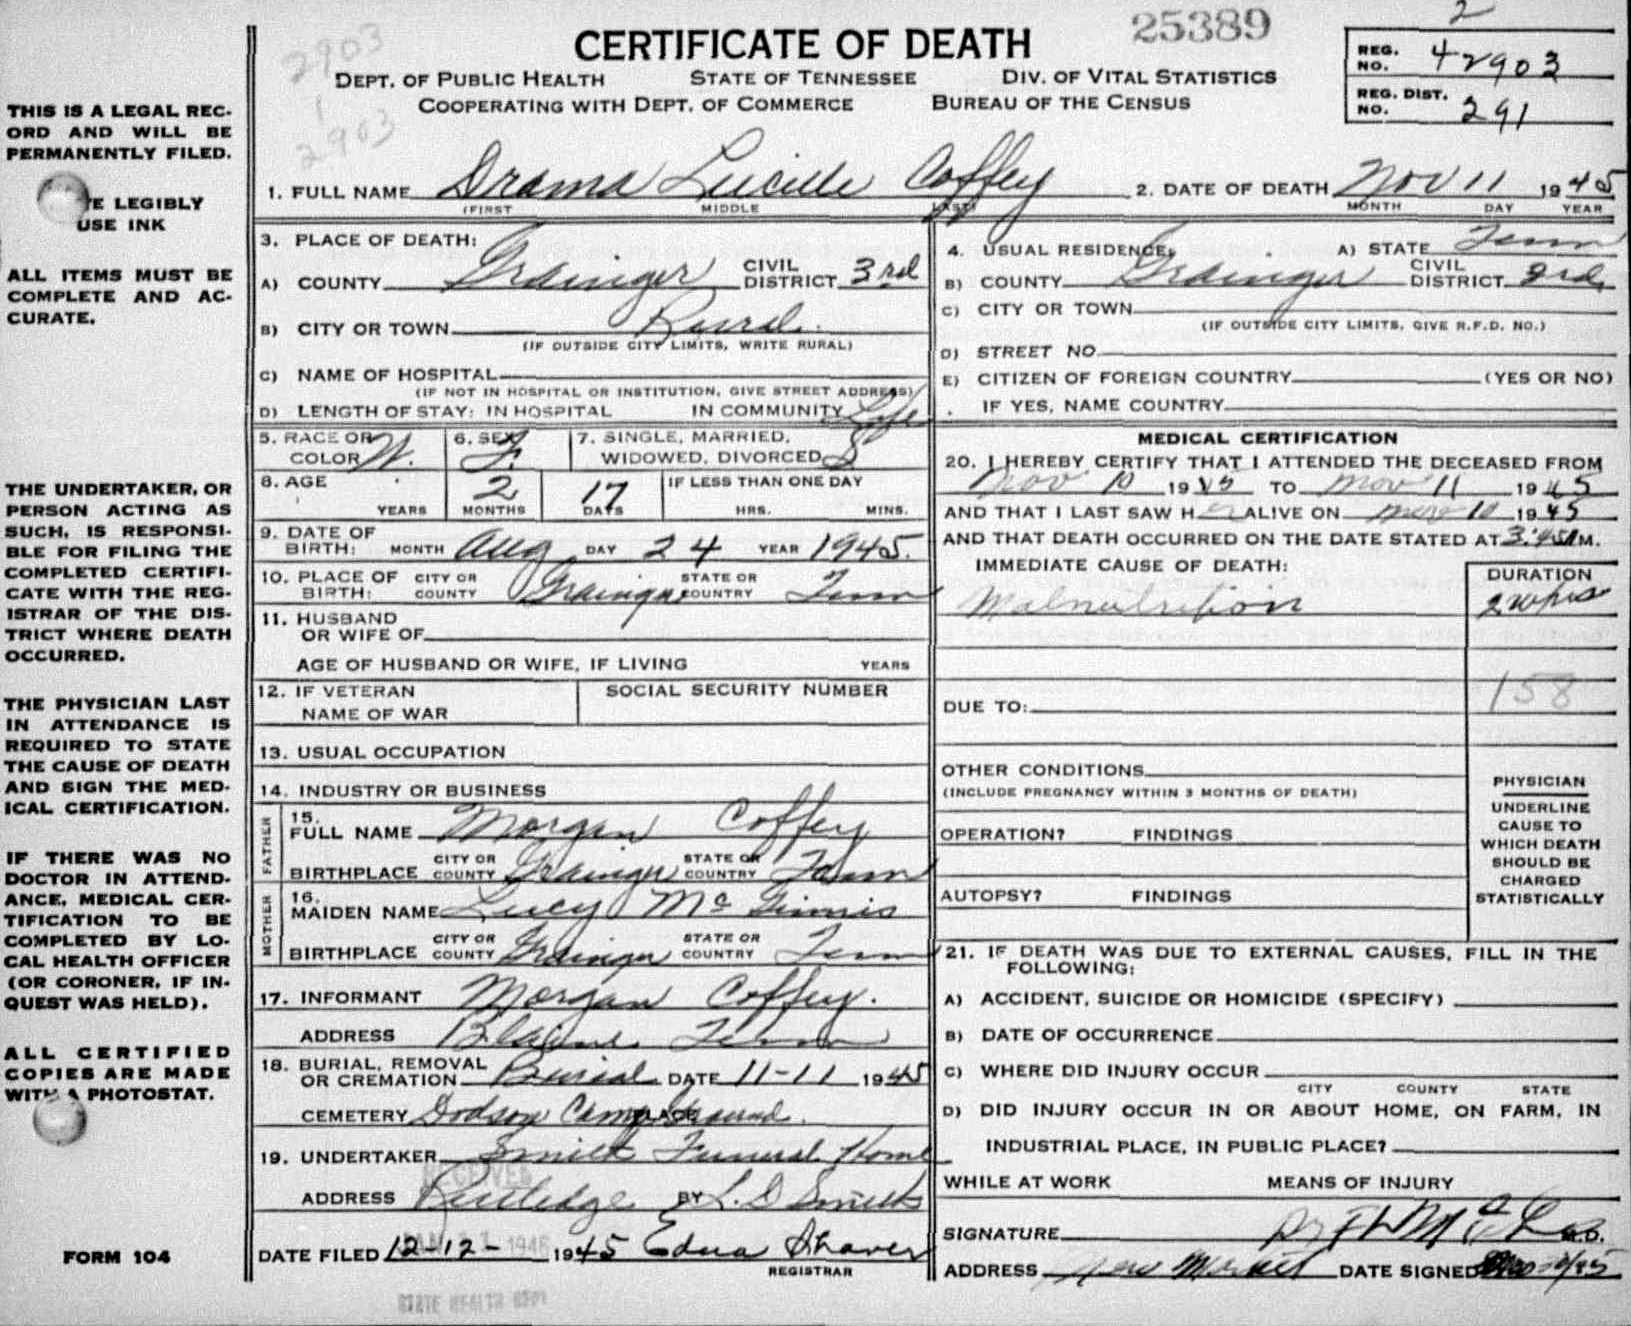 25389
2
2903
1
2903
CERTIFICATE OF DEATH
DEPT. OF PUBLIC HEALTH STATE OF TENNESSEE DIV. OF VITAL STATISTICS
COOPERATING WITH DEPT. OF COMMERCE BUREAU OF THE CENSUS
REG. NO. 42903
REG. DIST. NO. 291
THIS IS A LEGAL REC-
ORD AND WILL BE
PERMANENTLY FILED.
E LEGIBLY
USE INK
ALL ITEMS MUST BE
COMPLETE AND AC-
CURATE.
THE UNDERTAKER, OR
PERSON ACTING AS
SUCH, IS RESPONSI-
BLE FOR FILING THE
COMPLETED CERTIFI-
CATE WITH THE REG-
ISTRAR OF THE DIS-
TRICT WHERE DEATH
OCCURRED.
THE PHYSICIAN LAST
IN ATTENDANCE IS
REQUIRED TO STATE
THE CAUSE OF DEATH
AND SIGN THE MED-
ICAL CERTIFICATION.
IF THERE WAS NO
DOCTOR IN ATTEND-
ANCE, MEDICAL CER-
TIFICATION TO BE
COMPLETED BY LO-
CAL HEALTH OFFICER
(OR CORONER, IF IN-
QUEST WAS HELD).
ALL CERTIFIED
COPIES ARE MADE
WITH A PHOTOSTAT.
FORM 104
1. FULL NAME Drama Lucille Coffey 2. DATE OF DEATH Nov 11 1945
(FIRST MIDDLE LAST) MONTH DAY YEAR
3. PLACE OF DEATH:
A) COUNTY Grainger CIVIL DISTRICT 3rd
B) CITY OR TOWN Rural
(IF OUTSIDE CITY LIMITS, WRITE RURAL)
C) NAME OF HOSPITAL
(IF NOT IN HOSPITAL OR INSTITUTION, GIVE STREET ADDRESS)
D) LENGTH OF STAY: IN HOSPITAL IN COMMUNITY Life
4. USUAL RESIDENCE: A) STATE Tenn
B) COUNTY Grainger CIVIL DISTRICT 3rd
C) CITY OR TOWN
(IF OUTSIDE CITY LIMITS, GIVE R.F.D. NO.)
D) STREET NO.
E) CITIZEN OF FOREIGN COUNTRY (YES OR NO)
IF YES, NAME COUNTRY
5. RACE OR COLOR W. 6. SEX F. 7. SINGLE, MARRIED, WIDOWED, DIVORCED S
8. AGE 2 17 IF LESS THAN ONE DAY
YEARS MONTHS DAYS HRS. MINS.
9. DATE OF BIRTH: MONTH Aug DAY 24 YEAR 1945.
10. PLACE OF BIRTH: CITY OR COUNTY Grainger STATE OR COUNTRY Tenn
11. HUSBAND
OR WIFE OF
AGE OF HUSBAND OR WIFE, IF LIVING YEARS
12. IF VETERAN NAME OF WAR SOCIAL SECURITY NUMBER
13. USUAL OCCUPATION
14. INDUSTRY OR BUSINESS
FATHER
15. FULL NAME Morgan Coffey
BIRTHPLACE CITY OR COUNTY Grainger STATE OR COUNTRY Tenn
MOTHER
16. MAIDEN NAME Lucy Mc Ginnis
BIRTHPLACE CITY OR COUNTY Grainger STATE OR COUNTRY Tenn
17. INFORMANT Morgan Coffey.
ADDRESS Blaine Tenn
18. BURIAL, REMOVAL OR CREMATION Burial DATE 11-11 1945
CEMETERY Dodson Camp Ground PLACE
19. UNDERTAKER Smith Funeral Home
RECEIVED
ADDRESS Rutledge BY L. D Smith
DATE FILED 12-12- 1945 Edna Shaver
REGISTRAR
JAN 21 1946
STATE HEALTH DEPT
MEDICAL CERTIFICATION
20. I HEREBY CERTIFY THAT I ATTENDED THE DECEASED FROM
Nov 10 1945 TO Nov 11 1945
AND THAT I LAST SAW HER ALIVE ON Nov 10 1945
AND THAT DEATH OCCURRED ON THE DATE STATED AT 3:45 A M.
IMMEDIATE CAUSE OF DEATH: DURATION
Malnutrition 2 wks
158
DUE TO:
OTHER CONDITIONS
(INCLUDE PREGNANCY WITHIN 3 MONTHS OF DEATH)
OPERATION? FINDINGS
AUTOPSY? FINDINGS
PHYSICIAN
UNDERLINE
CAUSE TO
WHICH DEATH
SHOULD BE
CHARGED
STATISTICALLY
21. IF DEATH WAS DUE TO EXTERNAL CAUSES, FILL IN THE
FOLLOWING:
A) ACCIDENT, SUICIDE OR HOMICIDE (SPECIFY)
B) DATE OF OCCURRENCE
C) WHERE DID INJURY OCCUR
CITY COUNTY STATE
D) DID INJURY OCCUR IN OR ABOUT HOME, ON FARM, IN
INDUSTRIAL PLACE, IN PUBLIC PLACE?
WHILE AT WORK MEANS OF INJURY
SIGNATURE Dr M.D.
ADDRESS New Market DATE SIGNED